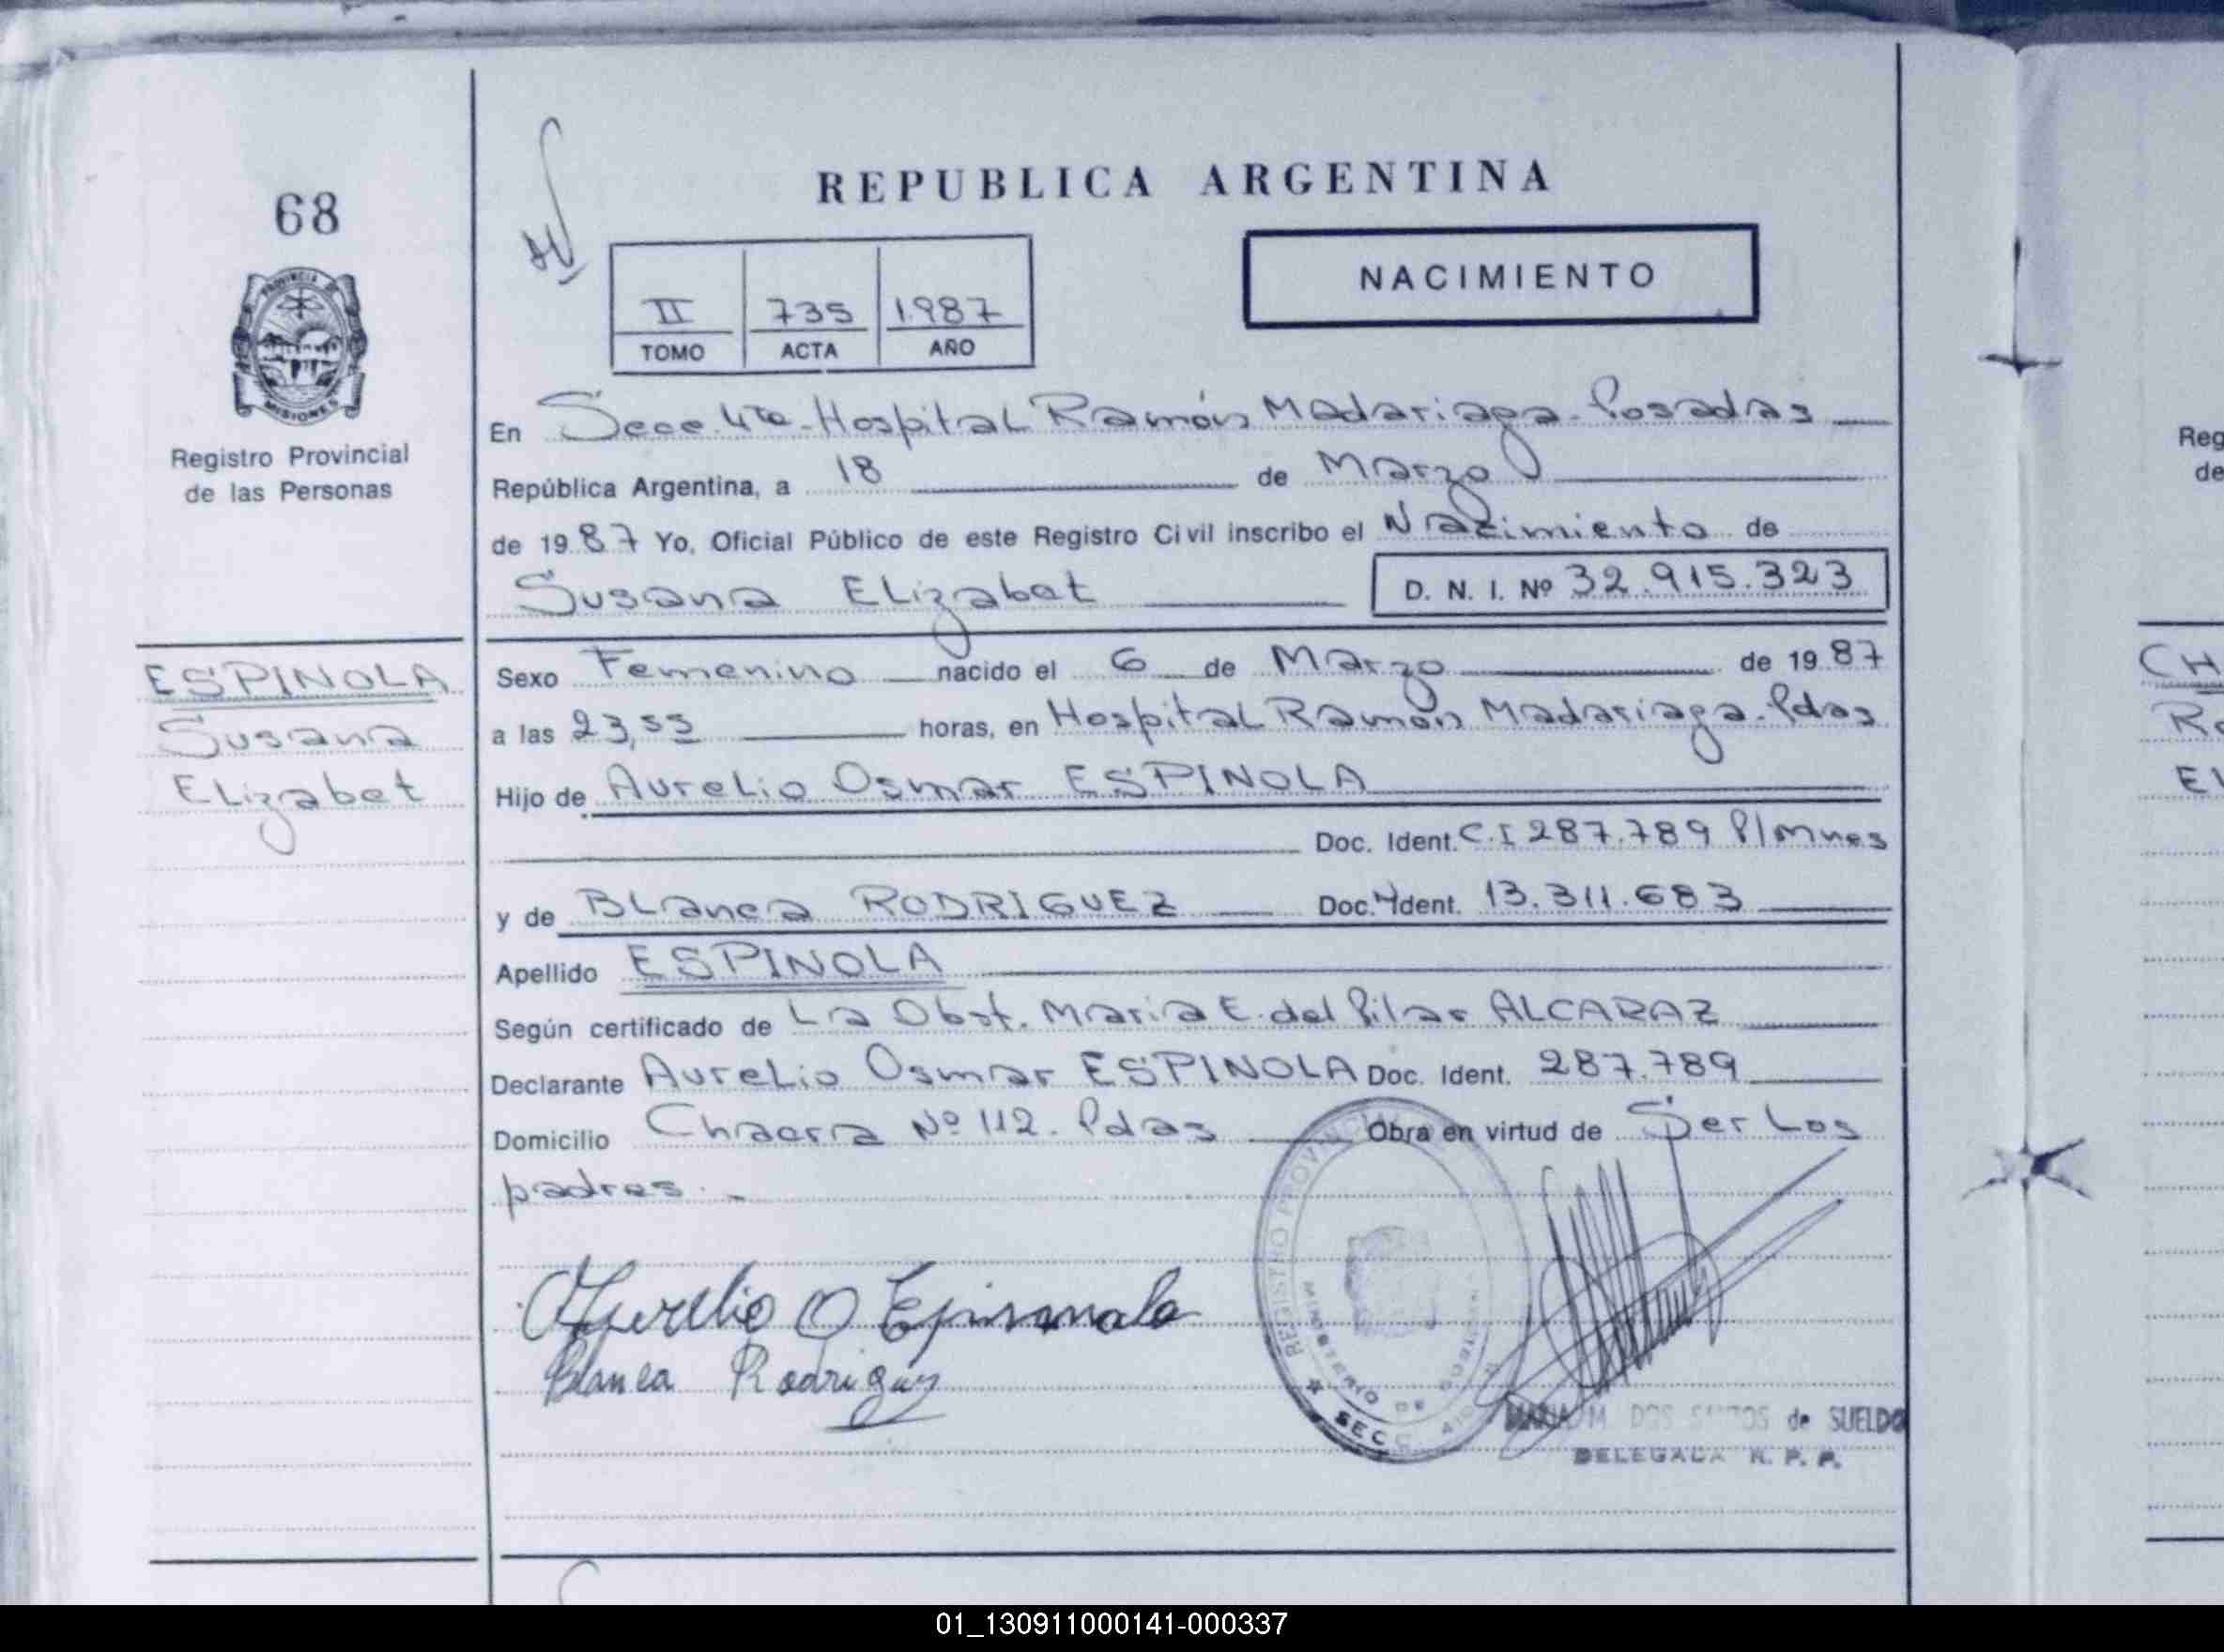 68
REPUBLICA ARGENTINA
NACIMIENTO
II 735 1987
TOMO ACTA AÑO
PROVINCIA D
MISIONES
Registro Provincial
de las Personas
En Secc. 4ta. Hospital Ramón Madariaga - Posadas
República Argentina, a 18 de Marzo
de 1987 Yo, Oficial Público de este Registro Civil inscribo el Nacimiento de
Susana Elizabet D. N. I. Nº 32.915.323
ESPINOLA
Susana
Elizabet
Sexo Femenino nacido el 6 de Marzo de 1987
a las 23,55 horas, en Hospital Ramón Madariaga - Pdas
Hijo de Aurelio Osmar ESPINOLA
Doc. Ident. C.I 287.789 P/Mnes
y de BLanca RODRIGUEZ Doc. Ident. 13.311.683
Apellido ESPINOLA
Según certificado de La Obst. Maria E. del Pilar ALCARAZ
Declarante Aurelio Osmar ESPINOLA Doc. Ident. 287.789
Domicilio Chacra Nº 112. Pdas Obra en virtud de Ser Los
padres. -
Aurelio O
Blanca Rodriguez
REGISTRO PROVINCIAL
MINISTERIO DE
SECC.
M. DOS SANTOS de SUELDO
DELEGADA R. P. P.
Reg
de
CH
El
01_130911000141-000337